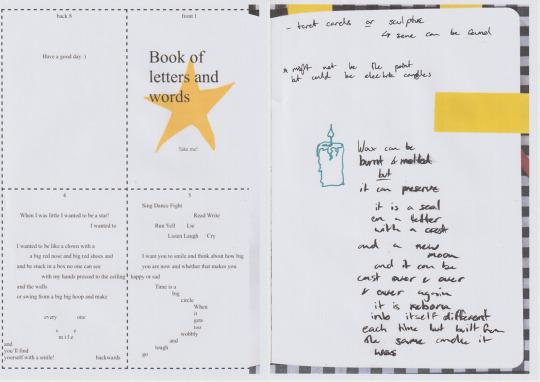 back 8
Have a good day :)
front 1
Book of
letters and
words
Take me!
4
When I was little I wanted to be a star!
I wanted to
I wanted to be like a clown with a
big red nose and big red shoes and
and be stuck in a box no one can see
with my hands pressed to the ceiling
and the walls
or swing from a big big hoop and make
every one
s e
m i l e
and
you'll find
yourself with a smile! backwards
5
Sing Dance Fight
Read Write
Run Yell Lie
Listen Laugh Cry
I want you to smile and think about how big
you are now and whether that makes you
happy or sad
Time is a
big
circle
When
it
gets
too
wobbly
and
tough
go
- tarot cards or sculptue
↳ some can be found
* might not be the point
but could be electric candles
Wax can be
burnt & melted
but
it can preserve
it is a seal
on a letter
with a crest
and a new
moon
and it can be
cast over & over
& over again
it is reborn
into itself different
each time but built from
the same candle it
was